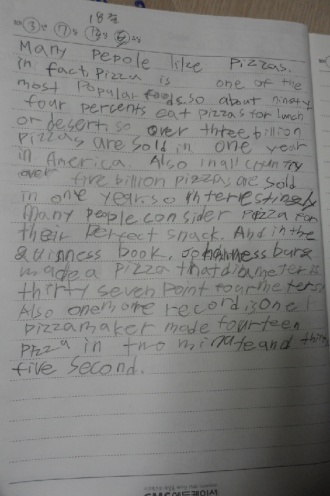 18줄
③ ⑦
Many pepole like pizzas.
in fact, pizza is one of the
most popular foods. so about ninety
four percents eat pizzas for lunch
or desert, so over three billion
pizzas are sold in one year
in America. Also in all country
over five billion pizzas are sold
in one year. so interestingly
Many people consider pizza for
their perfect snack. And in the
guinness book, johannesburg
made a pizza that diameter is
thirty seven point four meters.
Also one more record is one
pizzamaker made fourteen
pizza in two minute and thirty
five second.